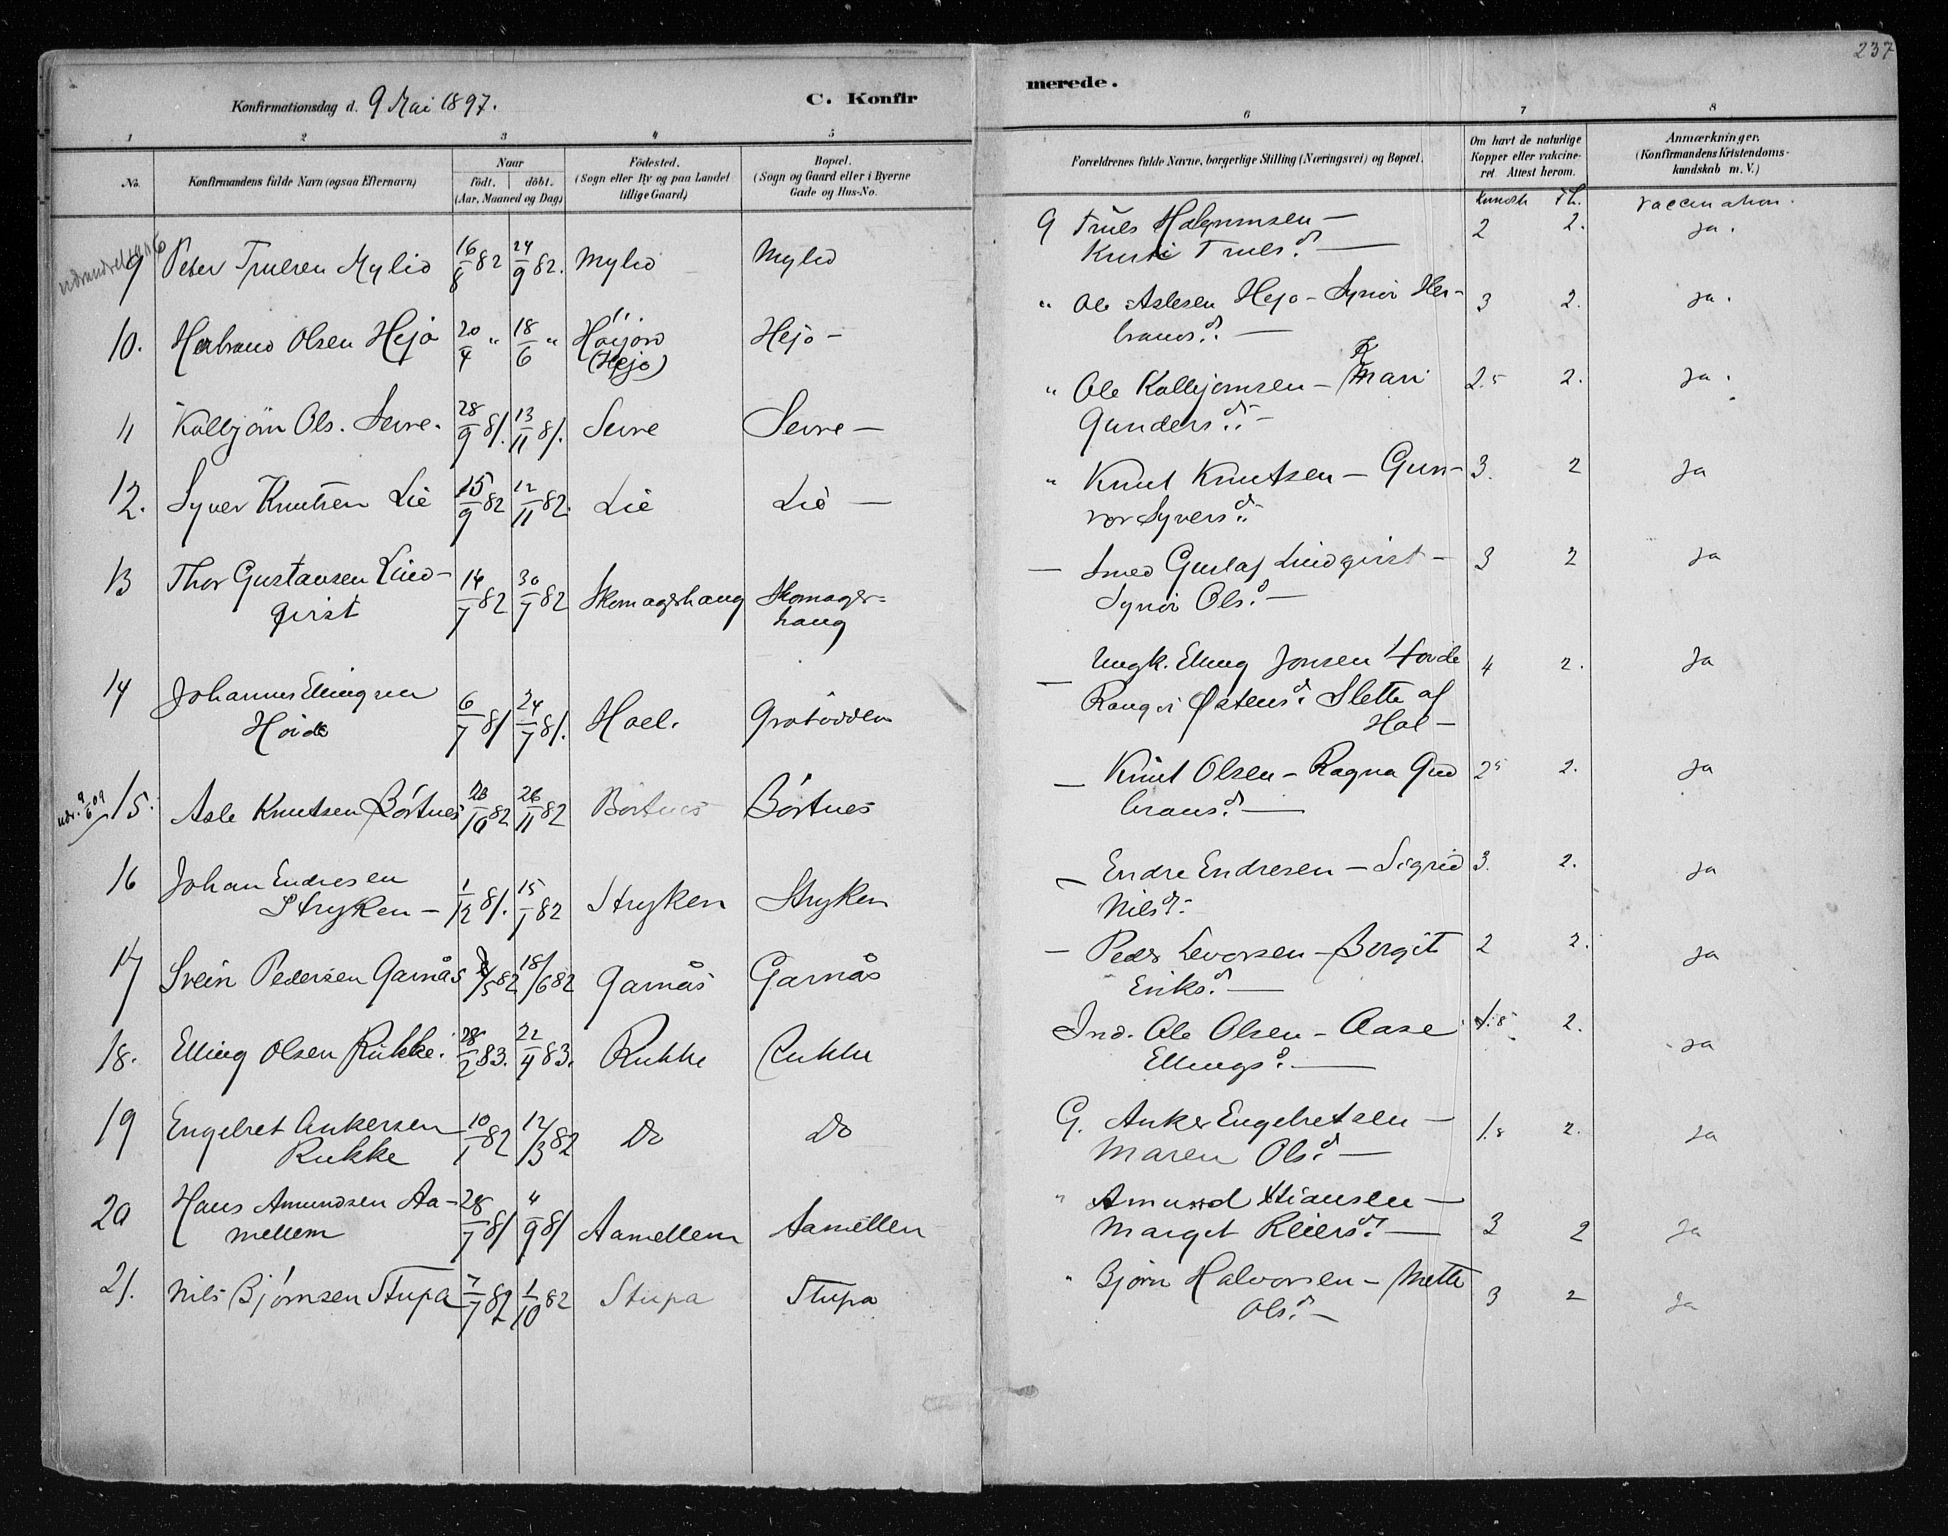 237
Konfirmationsdag d. 9 Mai 1897.
C. Konfir
merede.
1 2 3 4 5
6 7 8
No.
Konfirmandens fulde Navn (ogsaa Efternavn)
Naar
født. døbt.
(Aar, Maaned og Dag)
Fødested.
(Sogn eller By og paa Landet
tillige Gaard)
Bopæl.
(Sogn og Gaard eller i Byerne
Gade og Hus-No.
Forældrenes fulde Navne, borgerlige Stilling (Næringsvei) og Bopæl.
Om havt de naturlige
Kopper eller vakcine-
ret. Attest herom.
Anmærkninger.
(Konfirmandens Kristendoms-
kundskab m. V.)
Kundsk Fl. vaccination.
9 Peter Trulsen Mylid 16/8 82 24/9 82. Mylid Mylid
10. Herbrand Olsen Hejo 20/4 " 18/6 " Høijord
(Hejo) Hejo -
11 Kolbjørn Ols. Sevre. 28/9 81. 13/11 81. Sevre Sevre -
12. Syver Knutsen Lie 15/9 82 12/11 82. Lie Lie -
13 Thor Gustavsen Lind-
qvist 14/7 82 30/7 82 Skomagerhaug Skomager=
haug
14 Johannes Ellingsen
Hovde 6/7 81 24/7 81. Hoel.
udv. 9/6 09 15. Asle Knutsen Børtnes 26/11 82 Børtnes Børtnes
16 Johan Endresen
Stryken - 1/12 81. 15/1 82 Stryken Stryken
17 Svein Pedersen Garnås 18/6 82 Garnås Garnås
18. Elling Olsen Rukke. 28/2 83. 22/4 83. Rukke Rukke
19 Engebret Ankersen
Rukke 10/1 82 12/3 82 Do Do
20 Hans Amundsen Aa-
mellem 28/7 81 4/9 81 Aamellem Aamellem
21. Nils Bjørnsen Stupa 7/7 82 1/10 82 Stupa Stupa
G Truls -
Truls.d - 2 2. ja.
" Ole Aslesen Hejo - Synør Her-
brands.d - 3 2. ja.
" Ole Kolbjørnsen - Mari
Gunders.d - 2.5 2. ja.
" Knut Knutsen - Gun-
vor Syvers.d 3. 2 ja
- Smed Gustaf Lindqvist -
Synør Ols.d - 3 2 ja
- Ungk. Elling Jonsen Hovde
Rangdi Østens.d Slette af
Hol - 4 2. ja
- Knut Olsen - Ragna Gud
brands.d - 2 5 2. ja
- Endre Endresen - Sigrid
Nils.d - 3. 2. ja
- Peder Levorsen - Bergit
Eriks.d - 2 2. ja
Ind. Ole Olsen - Aase
Ellings.d - 1.8 2. ja
G. Anker Engebretsen -
Maren Ols.d - 1.8 2. ja
" Amund -
Marget Reiers.d - 3 2 ja
" Bjørn Halvorsen - Mette
Ols.d - 3 2 ja